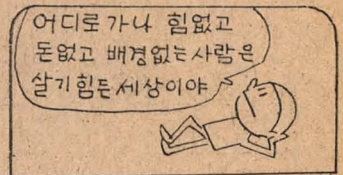 어디로 가나 힘없고
돈없고 배경없는 사람은
살기 힘든 세상이야